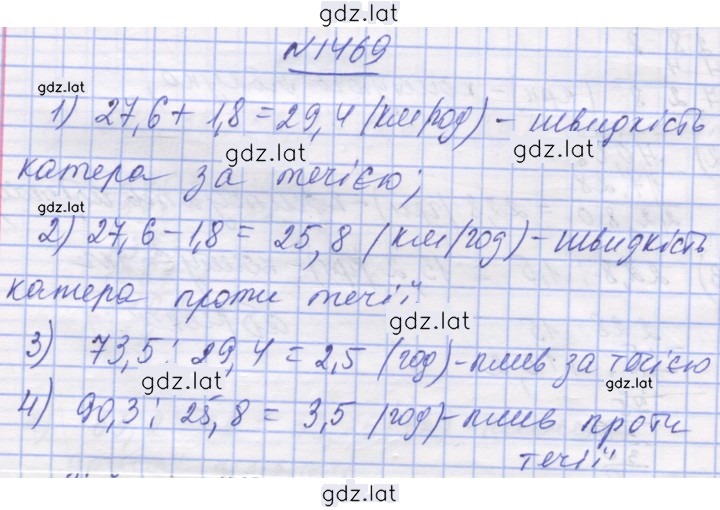 gdz.lat
№1469
gdz.lat
1) 27,6 + 1,8 = 29,4 (км/год) - швидкість
gdz.lat gdz.lat
катера за течією;
gdz.lat
2) 27,6 - 1,8 = 25,8 (км/год) - швидкість
катера проти течії
gdz.lat
3) 73,5 : 29,4 = 2,5 (год) - плив за течією
gdz.lat gdz.lat
4) 90,3 : 25,8 = 3,5 (год) - плив проти
течії
gdz.lat